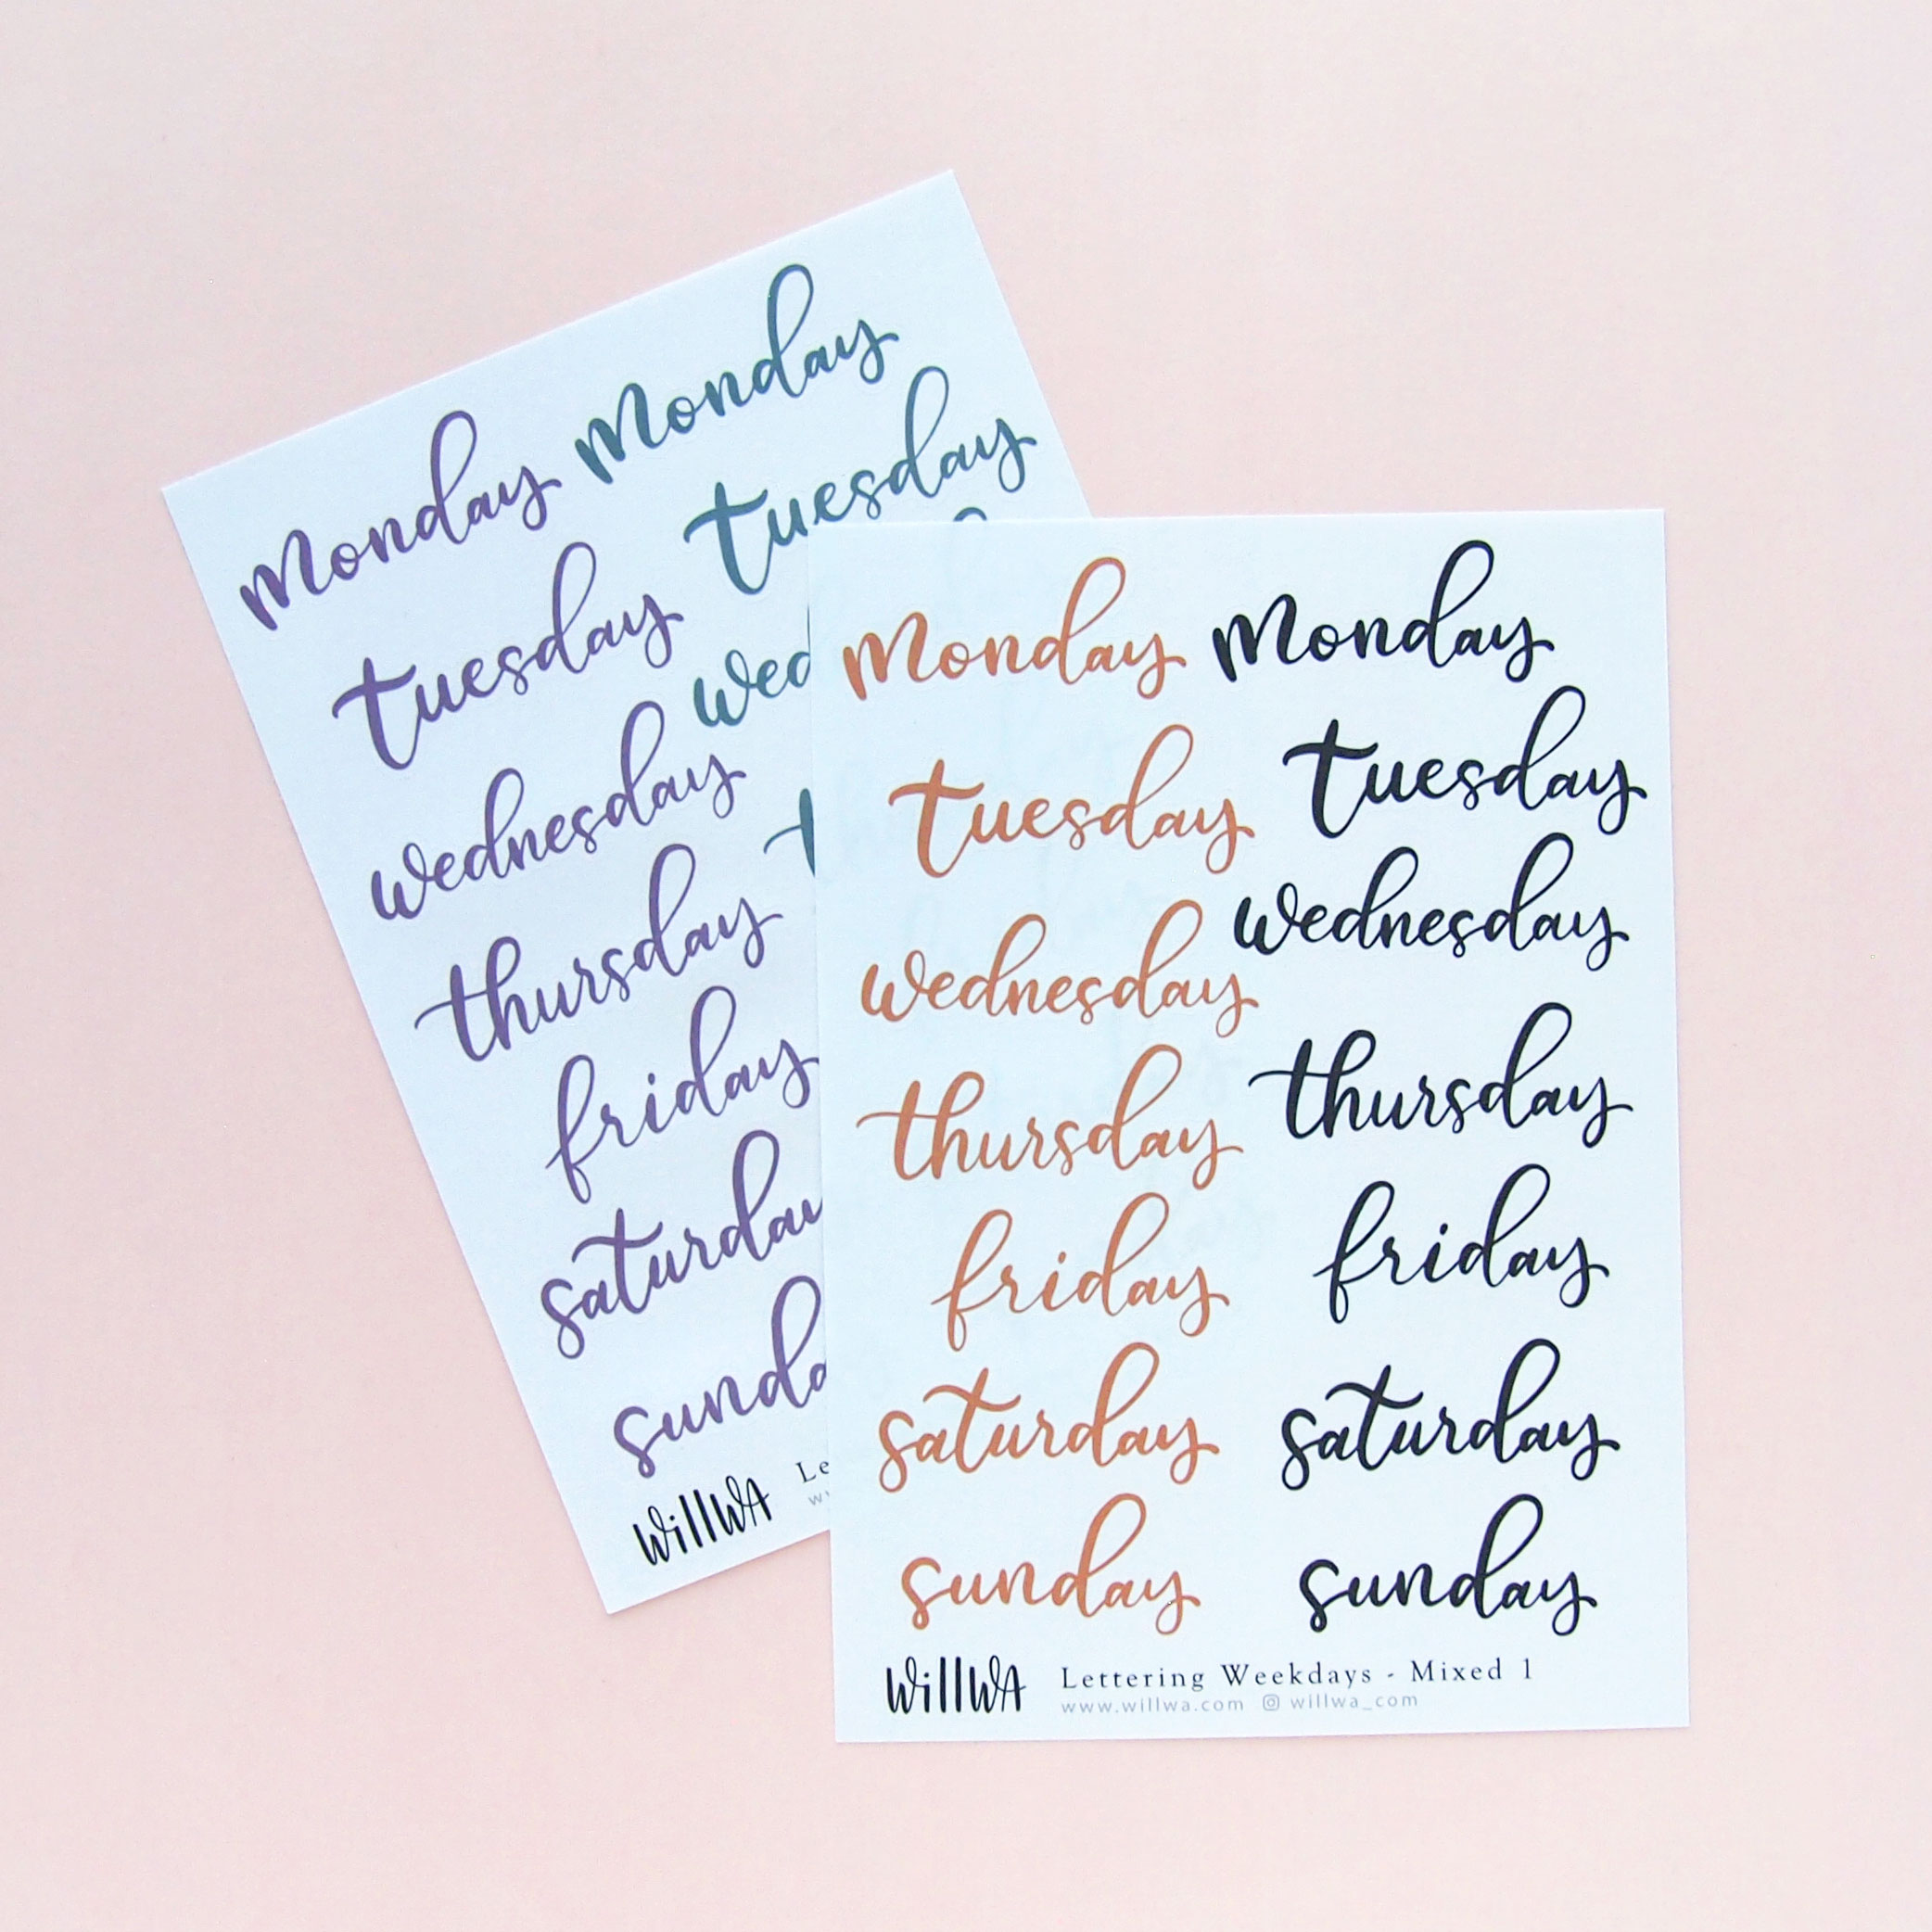 monday monday
tuesday tuesday
wednesday wed
thursday t
friday
saturday
sunda
WillWA Le
monday monday
tuesday tuesday
wednesday wednesday
thursday thursday
friday friday
saturday saturday
sunday sunday
WillWA Lettering Weekdays - Mixed 1
www.willwa.com willwa_com